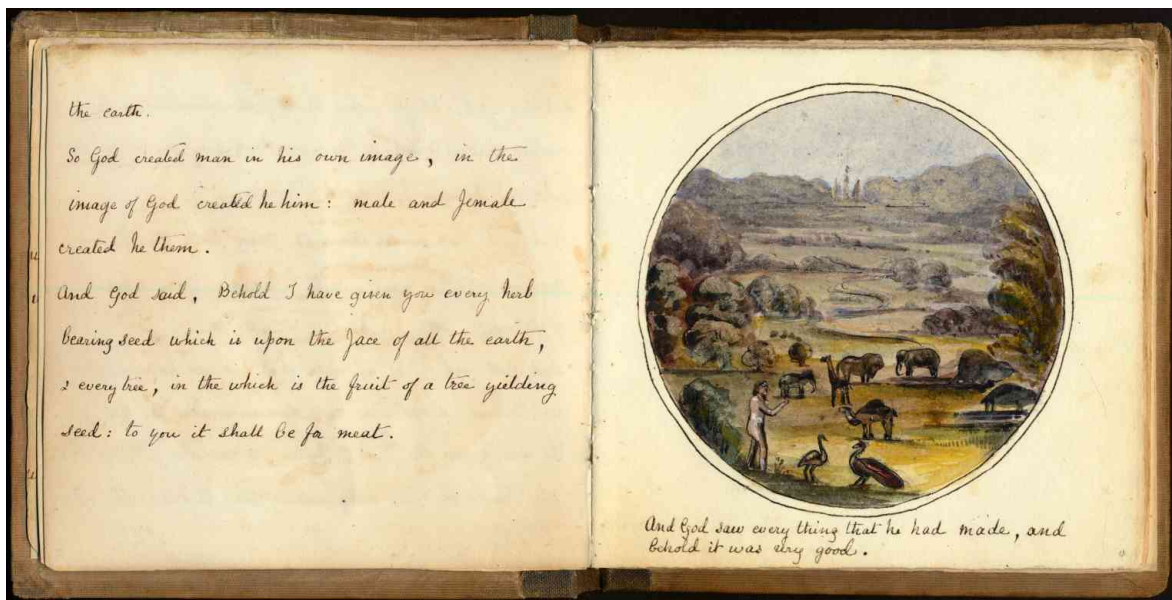 the earth.
So God created man in his own image, in the
image of God created he him: male and female
created he them.
And God said, Behold I have given you every herb
bearing seed which is upon the face of all the earth,
& every tree, in the which is the fruit of a tree yielding
seed: to you it shall be for meat.
And God saw every thing that he had made, and
behold it was very good.